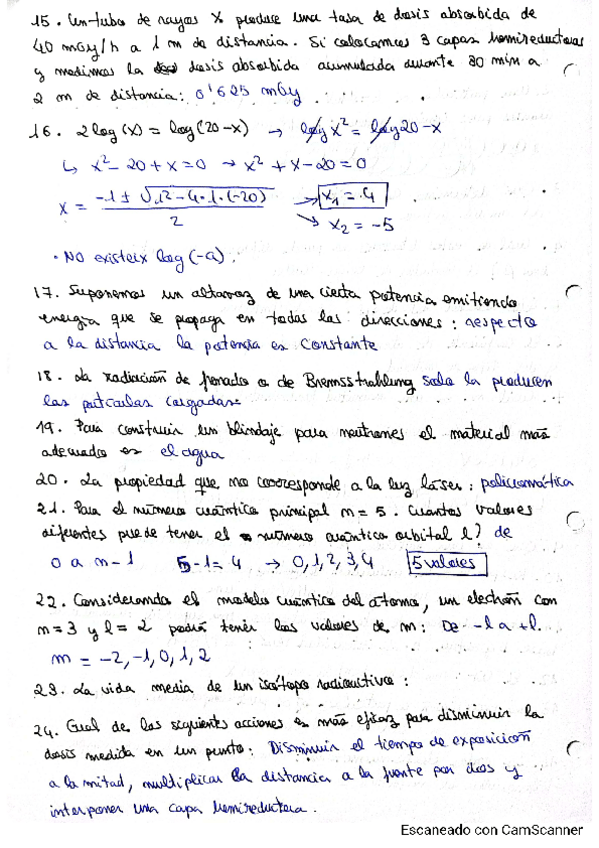 15. Un tubo de rayos X produce una tasa de dosis absorbida de
40 mGy/h a 1 m de distancia. Si colocamos 3 capas hemireductoras
y medimos la dosis absorbida acumulada durante 30 min a
2 m de distancia: 0'625 mGy
16. 2 log (x) = log (20 - x) → log x² = log 20 - x
↳ x² - 20 + x = 0 → x² + x - 20 = 0
x = -1 ± √1² - 4·1·(-20) / 2 → x₁ = 4
→ x₂ = -5
· NO existeix log (-a).
17. Suponemos un altavoz de una cierta potencia emitiendo
energía que se propaga en todas las direcciones: respecto
a la distancia la potencia es constante
18. La radiación de frenado o de Bremsstrahlung solo la producen
las partículas cargadas.
19. Para construir un blindaje para neutrones el material más
adecuado es el agua
20. La propiedad que no corresponde a la luz láser: policromática
21. Para el número cuántico principal n = 5. Cuantos valores
diferentes puede tener el número cuántico orbital l? de
0 a n-1 5-1=4 → 0,1,2,3,4 5 valores
22. Considerando el modelo cuántico del átomo, un electrón con
n=3 y l=2 podrá tener los valores de m: De -l a +l.
m = -2,-1,0,1,2
23. La vida media de un isótopo radioactivo:
24. Cual de las siguientes acciones es más eficaz para disminuir la
dosis medida en un punto: Disminuir el tiempo de exposición
a la mitad, multiplicar la distancia a la fuente por dos y
interponer una capa hemireductora.
Escaneado con CamScanner